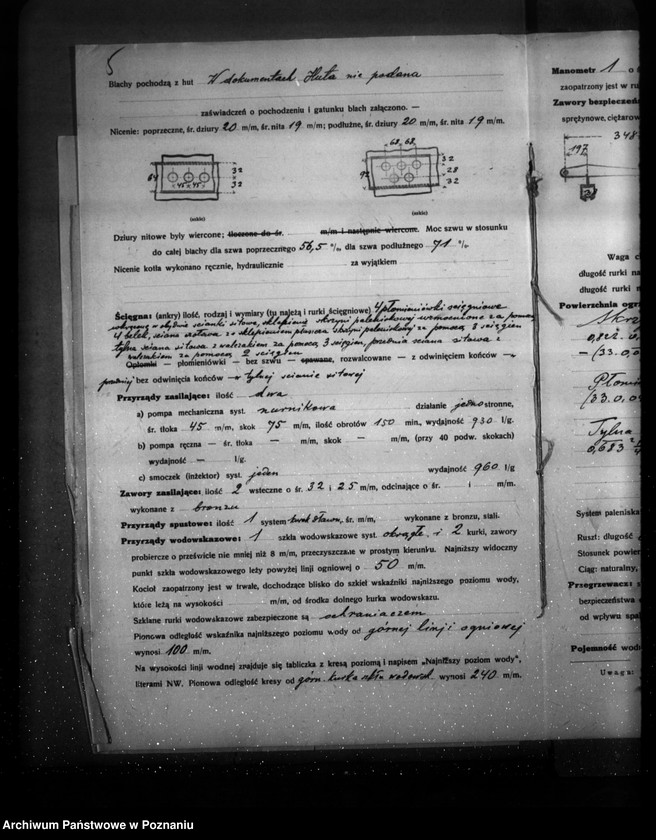 5
Blachy pochodzą z hut W dokumentach Huta nie podana
zaświadczeń o pochodzeniu i gatunku blach załączono. —
Nicenie: poprzeczne, śr. dziury 20 m/m, śr. nita 19 m/m; podłużne, śr. dziury 20 m/m, śr. nita 19 m/m.
68 68
64 32 32 45 45
92 32 28 32
(szkic) (szkic)
Dziury nitowe były wiercone; tłoczone do śr. m/m i następnie wiercone. Moc szwu w stosunku
do całej blachy dla szwa poprzecznego 56,5 %, dla szwa podłużnego 71 %
Nicenie kotła wykonano ręcznie, hydraulicznie za wyjątkiem
Ścięgna: (ankry) ilość, rodzaj i wymiary (tu należą i rurki ścięgniowe) 4 płomieniówki ścięgniowe
wkręcone w obydwie ścianki sitowe, sklepienie skrzyni paleniskowej wzmocnione za pomocą
4 belek, ściana za pomocą 3 ścięgien
tylna ściana sitowa z walczakiem za pomocą 3 ścięgien, przednia ściana sitowa z
walczakiem za pomocą 2 ścięgien
Opłomki — płomieniówki — bez szwu — spawane, rozwalcowane — z odwinięciem końców — w
przedniej bez odwinięcia końców — w tylnej ścianie sitowej
Przyrządy zasilające: ilość dwa
a) pompa mechaniczna syst. nurnikowa działanie jednostronne,
śr. tłoka 45 m/m, skok 75 m/m, ilość obrotów 150 min, wydajność 930 l/g.
b) pompa ręczna — śr. tłoka — m/m, skok — m/m, (przy 40 podw. skokach)
wydajność — l/g.
c) smoczek (inżektor) syst. jeden wydajność 960 l/g
Zawory zasilające: ilość 2 wsteczne o śr. 32 i 25 m/m, odcinające o śr. i m/m.
wykonane z bronzu
Przyrządy spustowe: ilość 1 system śr. m/m, wykonane z bronzu, stali.
Przyrządy wodowskazowe: 1 szkła wodowskazowe syst. okrągłe i 2 kurki, zawory
probiercze o prześwicie nie mniej niż 8 m/m, przeczyszczaze w prostym kierunku. Najniższy widoczny
punkt szkła wodowskazowego leży powyżej linji ogniowej o 50 m/m.
Kocioł zaopatrzony jest w trwałe, dochodzące blisko do szkieł wskaźniki najniższego poziomu wody,
które leżą na wysokości m/m, od środka dolnego kurka wodowskazu.
Szklane rurki wodowskazowe zabezpieczone są ochraniaczem
Pionowa odległość wskaźnika najniższego poziomu wody od górnej linji ogniowej
wynosi 100 m/m.
Na wysokości linji wodnej znajduje się tabliczka z kresą poziomą i napisem „Najniższy poziom wody",
literami NW. Pionowa odległość kresy od górn. kurka szkła wodowsk. wynosi 240 m/m.
Manometr 1 o
zaopatrzony jest w ru
Zawory bezpieczeń
sprężynowe, ciężarow
348
197
Waga c
długość rurki na
długość rurki n
Powierzchnia ogr
Skrz
0,82
(33.0,0
Płomi
(33.0,0
Tylna
0,683
System paleniska
Ruszt: długość
Stosunek powier
Ciąg: naturalny,
Przegrzewacz: s
bezpieczeństwa
od wpływu spal
Pojemność wod
Uwaga:
Archiwum Państwowe w Poznaniu